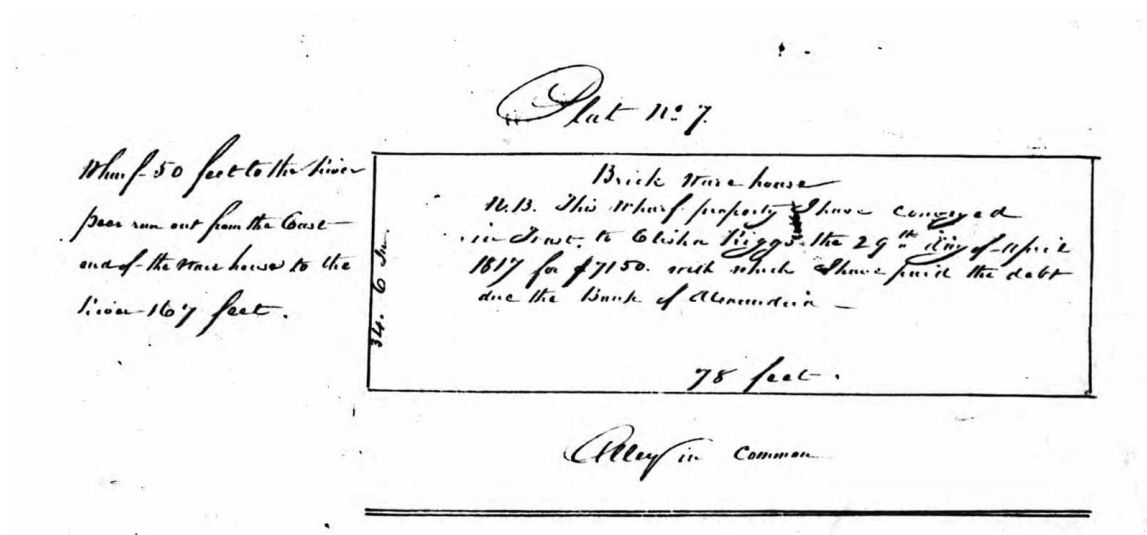 Plat No. 7.
Wharf 50 feet to the River
peer run out from the East
end of the Ware house to the
River 167 feet.
34. 6 In.
Brick Ware house
N.B. This Wharf property I have conveyed
in Trust, to Elisha Riggs the 29th day of April
1817 for $7150. with which I have paid the debt
due the Bank of Alexandria —
78 feet.
Alley in Common